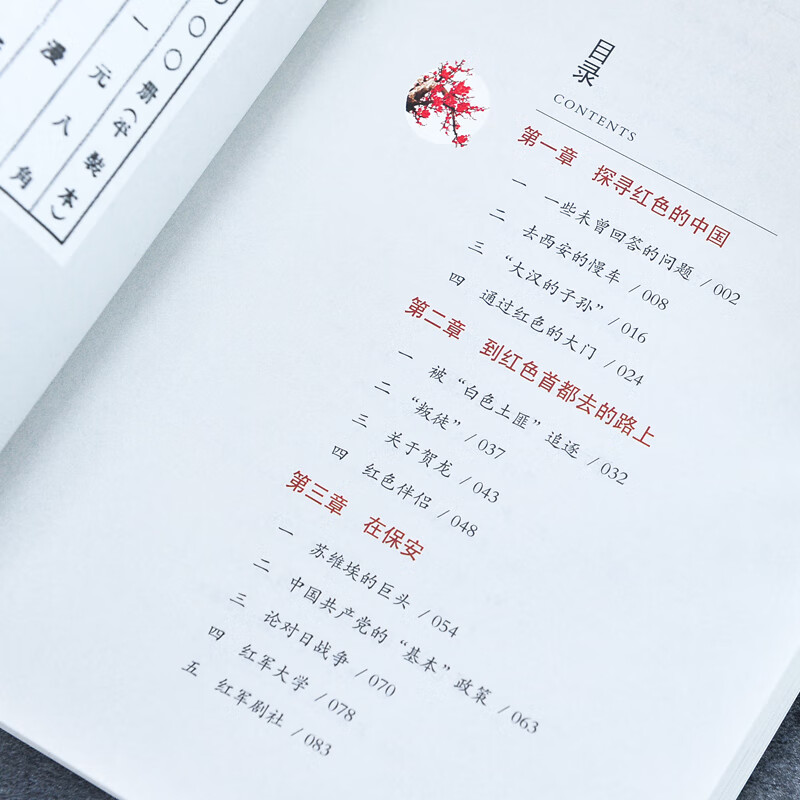 〇〇册(平裝本)
一元八角
漫
目录
CONTENTS
第一章 探寻红色的中国
一 一些未曾回答的问题 / 002
二 去西安的慢车 / 008
三 “大汉的子孙” / 016
四 通过红色的大门 / 024
第二章 到红色首都去的路上
一 被“白色土匪”追逐 / 032
二 “叛徒” / 037
三 关于贺龙 / 043
四 红色伴侣 / 048
第三章 在保安
一 苏维埃的巨头 / 054
二 中国共产党的“基本”政策 / 063
三 论对日战争 / 070
四 红军大学 / 078
五 红军剧社 / 083